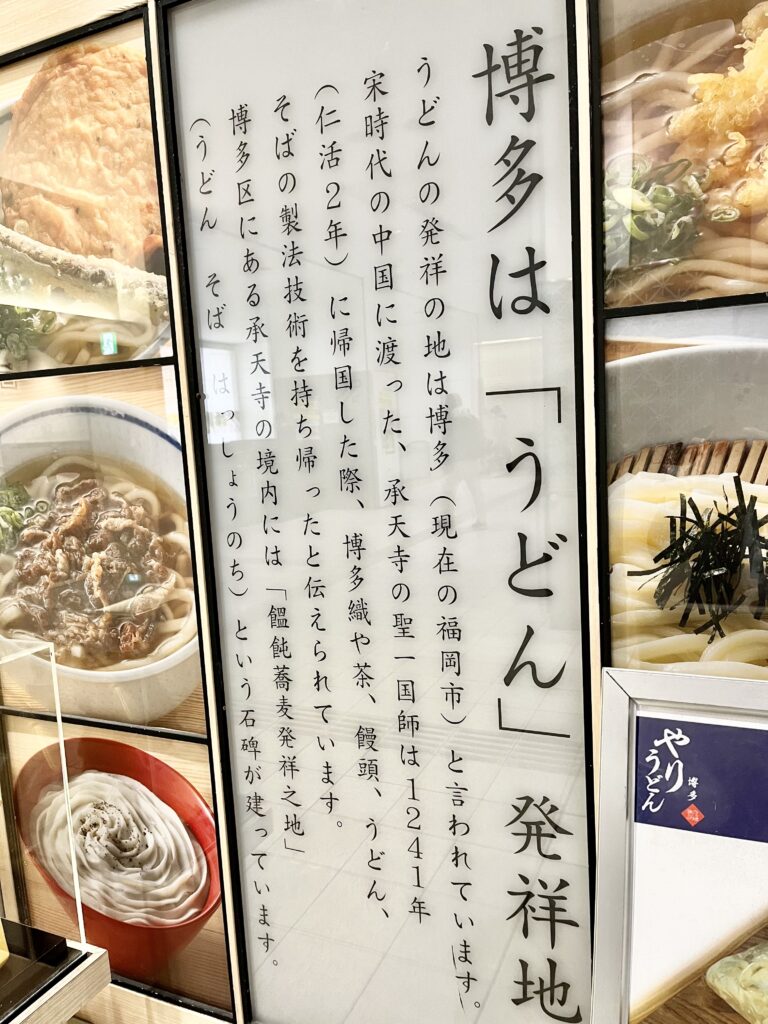 博多は「うどん」発祥地
うどんの発祥の地は博多（現在の福岡市）と言われています。
宋時代の中国に渡った、承天寺の聖一国師は1241年
（仁活2年）に帰国した際、博多織や茶、饅頭、うどん、
そばの製法技術を持ち帰ったと伝えられています。
博多区にある承天寺の境内には「饂飩蕎麦発祥之地」
（うどん　そば　はっしょうのち）という石碑が建っています。
博多
やりうどん